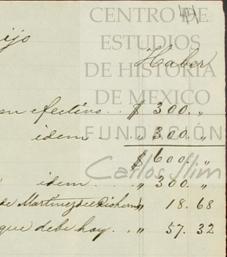 CENTRO DE
ESTUDIOS
DE HISTORIA
DE MEXICO
FUNDACIÓN
Carlos Slim
ijo
Haber
en efectivo.. $ 300. "
idem " 300. "
$ 600. "
idem.. " 300. "
de Martinez de " 18. 68
que debe hoy. .. " 57. 32